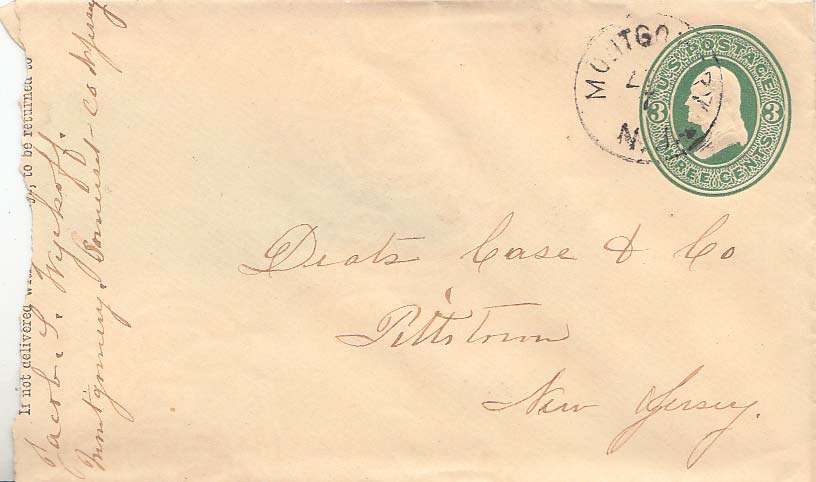 If not delivered to be returned to
Jacob. S. Wyckoff.
Montgomery. Somerset - Co N Jersey
MONTGO
N.
U.S. POSTAGE
3 3
THREE CENTS
Deats Case & Co
Pittstown
New Jersey.